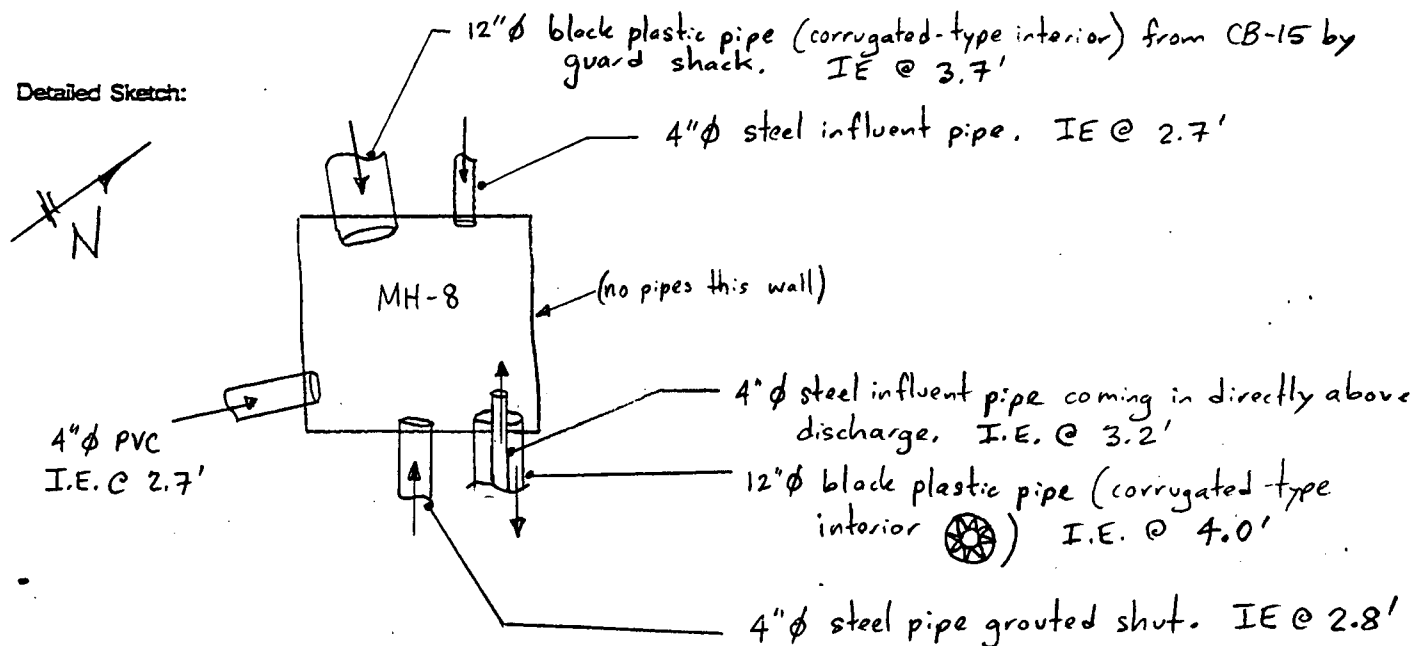 12"ϕ black plastic pipe (corrugated-type interior) from CB-15 by
guard shack. IE @ 3.7'
Detailed Sketch:
4"ϕ steel influent pipe. IE @ 2.7'
N
MH-8
(no pipes this wall)
4"ϕ steel influent pipe coming in directly above
discharge. I.E. @ 3.2'
4"ϕ PVC
I.E. @ 2.7'
12"ϕ black plastic pipe (corrugated-type
interior ) I.E. @ 4.0'
4"ϕ steel pipe grouted shut. IE @ 2.8'